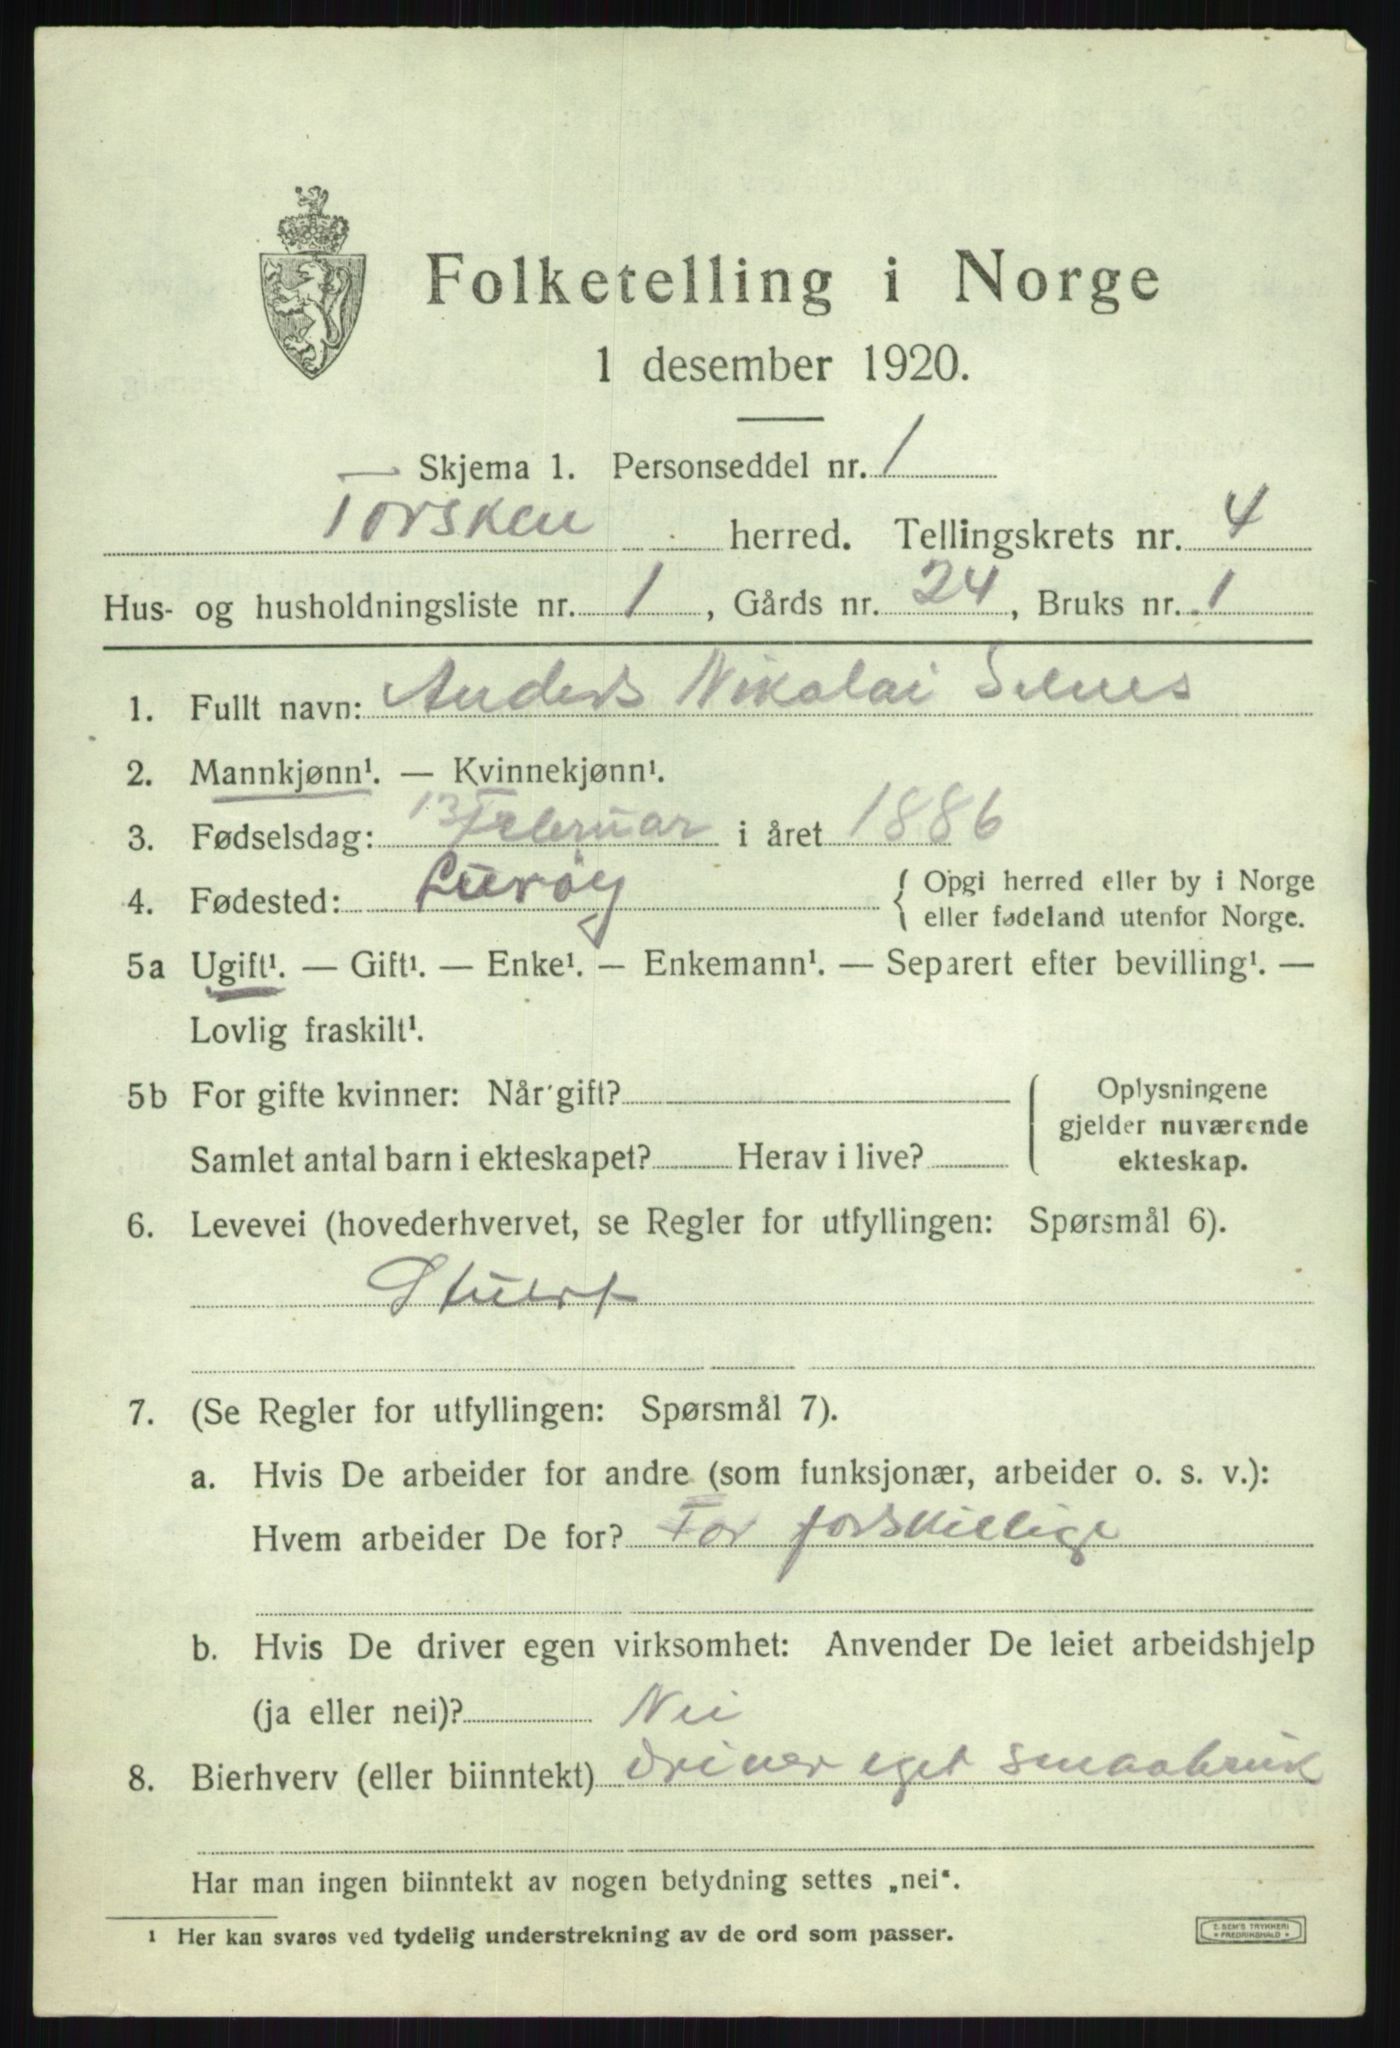 Folketelling i Norge
1 desember 1920.
Skjema 1. Personseddel nr. 1
Torsken herred. Tellingskrets nr. 4
Hus- og husholdningsliste nr. 1, Gårds nr. 24, Bruks nr. 1
1. Fullt navn: Anders Nikolai Selnes
2. Mannkjønn¹. — Kvinnekjønn¹.
3. Fødselsdag: 13 Februar i året 1886
4. Fødested: Lurøy { Opgi herred eller by i Norge
eller fødeland utenfor Norge.
5a Ugift¹. — Gift¹. — Enke¹. — Enkemann¹. — Separert efter bevilling¹. —
Lovlig fraskilt¹.
5b For gifte kvinner: Når gift? { Oplysningene
gjelder nuværende
Samlet antal barn i ekteskapet? Herav i live? ekteskap.
6. Levevei (hovederhvervet, se Regler for utfyllingen: Spørsmål 6).
Stuert
7. (Se Regler for utfyllingen: Spørsmål 7).
a. Hvis De arbeider for andre (som funksjonær, arbeider o. s. v.):
Hvem arbeider De for? For forskillige
b. Hvis De driver egen virksomhet: Anvender De leiet arbeidshjelp
(ja eller nei)? Nei
8. Bierhverv (eller biinntekt) driver eget smaabruk
Har man ingen biinntekt av nogen betydning settes „nei“.
¹ Her kan svares ved tydelig understrekning av de ord som passer.
E. SEM'S TRYKKERI
* FREDRIKSHALD *